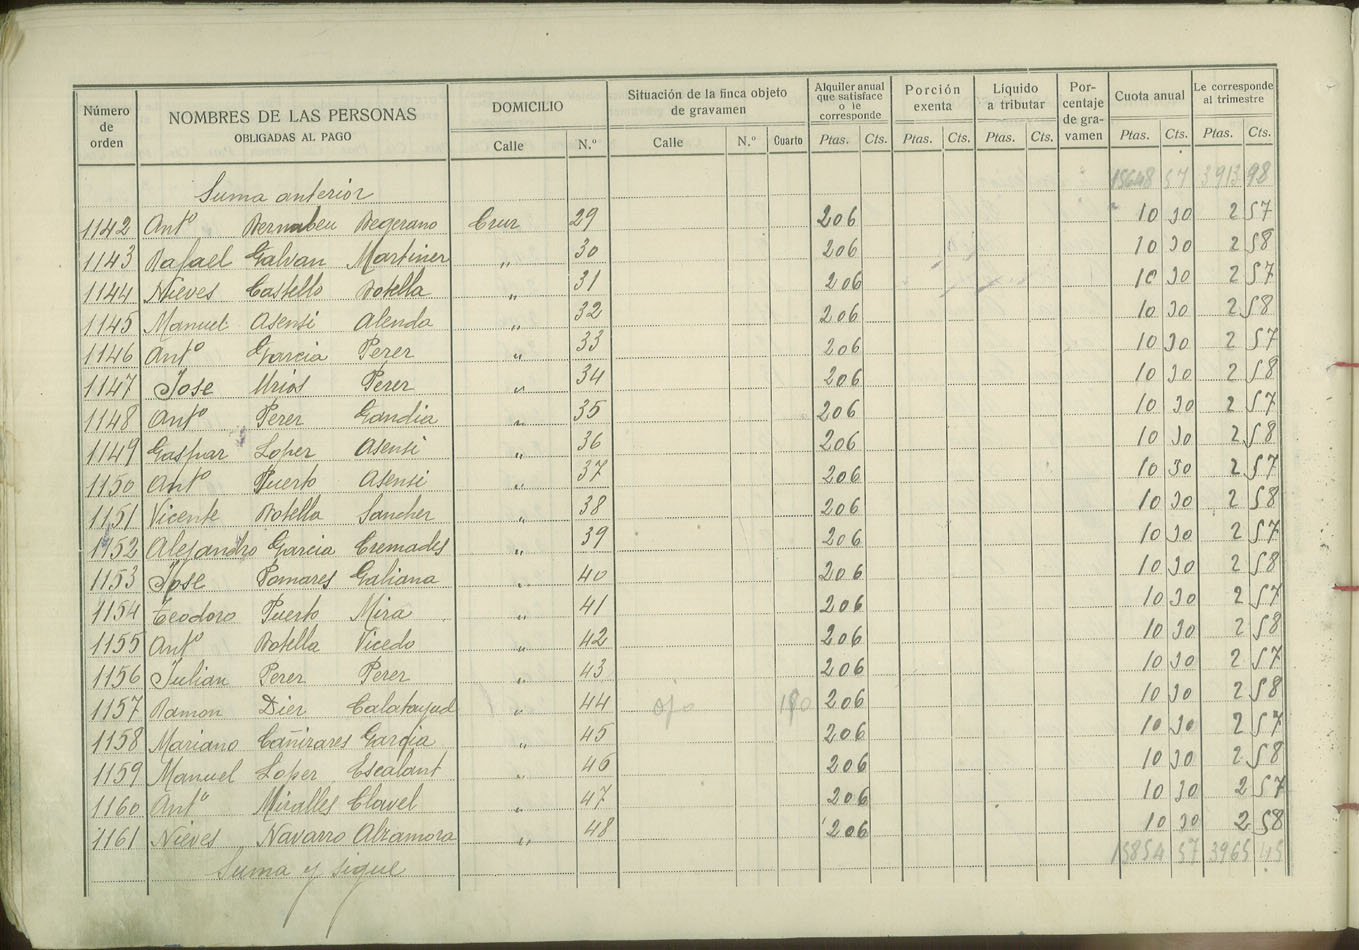 Número de orden NOMBRES DE LAS PERSONAS OBLIGADAS AL PAGO DOMICILIO Situación de la finca objeto de gravamen Alquiler anual que satisface o le corresponde Porción exenta Líquido a tributar Por-centaje de gra-vamen Cuota anual Le corresponde al trimestre
Calle N.º Calle N.º Cuarto Ptas. Cts. Ptas. Cts. Ptas. Cts. Ptas. Cts. Ptas. Cts.
Suma anterior 15648 57 3913 98
1142 Antº Bernabeu Begerano Cruz 29 206 10 30 2 57
1143 Rafael Galvan Martinez " 30 206 10 30 2 58
1144 Nieves Castello Botella " 31 206 10 30 2 57
1145 Manuel Asensi Alenda " 32 206 10 30 2 58
1146 Antº Garcia Perez " 33 206 10 30 2 57
1147 Jose Urios Perez " 34 206 10 30 2 58
1148 Antº Perez Gandia " 35 206 10 30 2 57
1149 Gaspar Lopez Asensi " 36 206 10 30 2 58
1150 Antº Puerto Asensi " 37 206 10 30 2 57
1151 Vicente Botella Sanchez " 38 206 10 30 2 58
1152 Alejandro Garcia Cremades " 39 206 10 30 2 57
1153 Jose Pomares Galiana " 40 206 10 30 2 58
1154 Teodoro Puerto Mira " 41 206 10 30 2 57
1155 Antº Botella Vicedo " 42 206 10 30 2 58
1156 Julian Perez Perez " 43 206 10 30 2 57
1157 Ramon Diez Calatayud " 44 ojo 206 10 30 2 58
1158 Mariano Cañizares Garcia " 45 206 10 30 2 57
1159 Manuel Lopez Escalant " 46 206 10 30 2 58
1160 Antº Miralles Clavel " 47 206 10 30 2 57
1161 Nieves Navarro Alzamora " 48 206 10 30 2 58
Suma y sigue 15854 57 3965 45